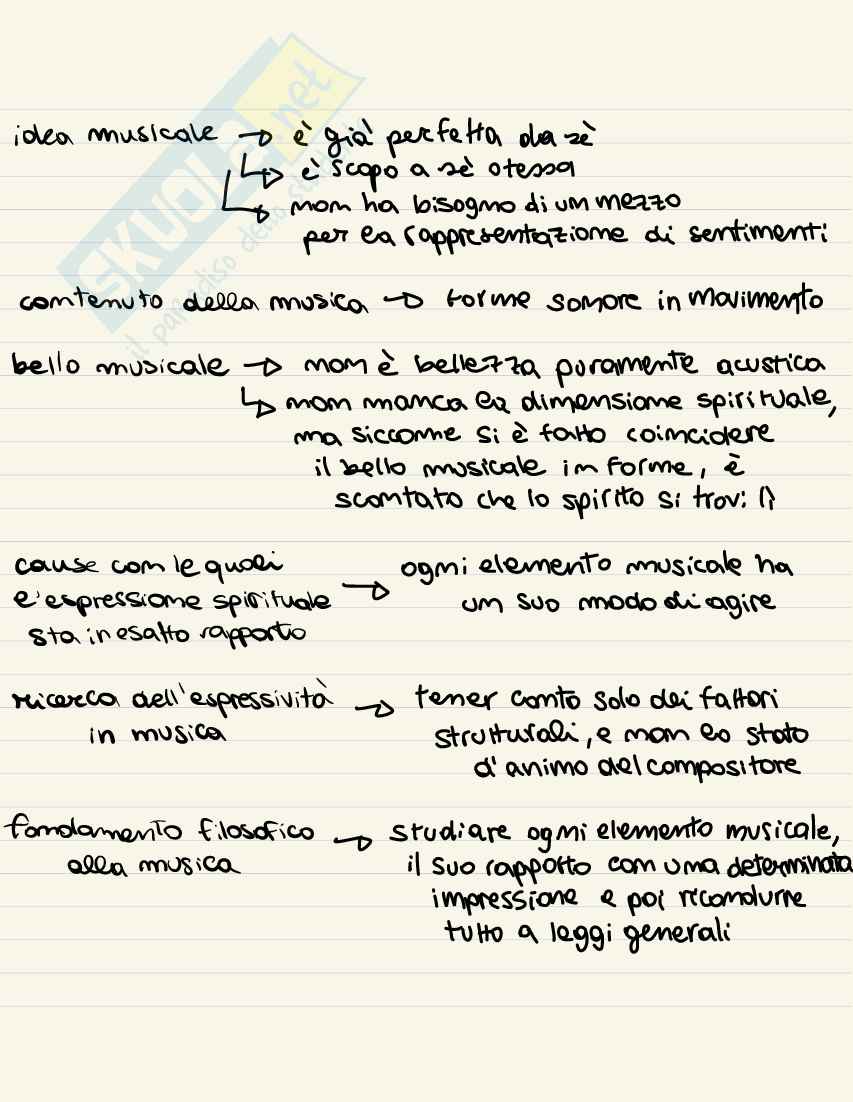 SKUOLA.net
il paradiso dello studente
idea musicale → è già perfetta da sè
↳ è scopo a sè stessa
↳ non ha bisogno di un mezzo
per la rappresentazione di sentimenti
contenuto della musica → forme sonore in movimento
bello musicale → non è bellezza puramente acustica
↳ non manca la dimensione spirituale,
ma siccome si è fatto coincidere
il bello musicale in forme, è
scontato che lo spirito si trovi lì
cause con le quali → ogni elemento musicale ha
l'espressione spirituale un suo modo di agire
sta in esatto rapporto
ricerca dell'espressività → tener conto solo dei fattori
in musica strutturali, e non lo stato
d'animo del compositore
fondamento filosofico → studiare ogni elemento musicale,
alla musica il suo rapporto con una determinata
impressione e poi ricondurre
tutto a leggi generali